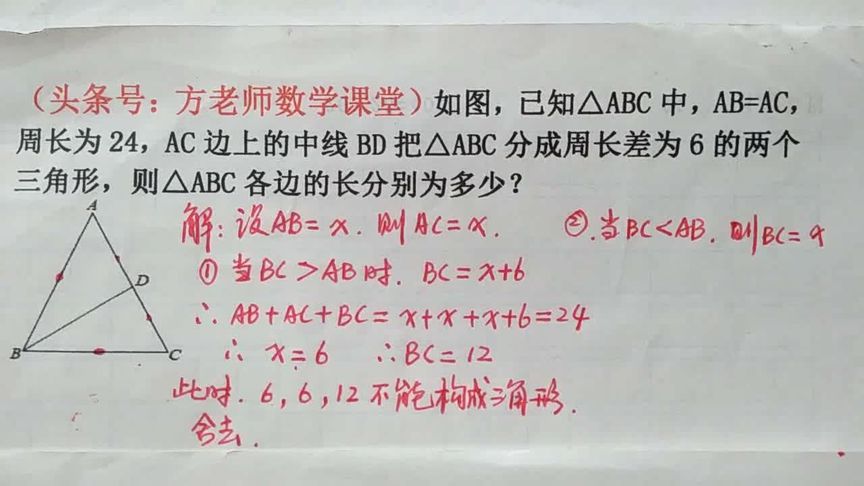 （头条号：方老师数学课堂）如图，已知△ABC 中，AB=AC，
周长为 24，AC 边上的中线 BD 把△ABC 分成周长差为 6 的两个
三角形，则△ABC 各边的长分别为多少？
A
D
B
C
解：设AB=x. 则AC=x.
①当BC>AB时. BC=x+6
∴ AB+AC+BC=x+x+x+6=24
∴ x=6 ∴BC=12
此时. 6，6，12不能构成三角形.
舍去.
②.当BC<AB. 则BC=